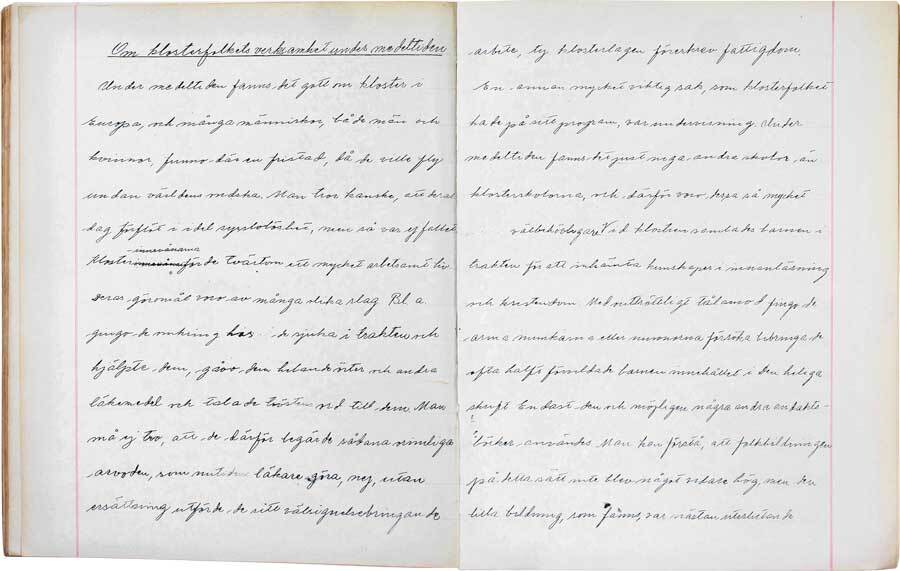 Om klosterfolkets verksamhet under medeltiden
Under medeltiden fanns det gott om kloster i
Europa, och många människor, både män och
kvinnor, funno där en fristad, då de ville fly
undan världens ondska. Man tror kanske, att deras
dag förflöt i idel sysslolöshet, men så var ej fallet
Klosterinnevånarna förde tvärtom ett mycket arbetsamt liv
deras göromål voro av många olika slag Bl. a.
gingo de omkring hos de sjuka i trakten och
hjälpte dem, gåvo dem helande örter och andra
läkemedel och talade tröstens ord till dem. Man
må ej tro, att de därför begärde sådana orimliga
arvoden, som nutidens läkare göra, nej, utan
ersättning utförde de sitt välsignelsebringande
arbete, ty klosterlagen föreskrev fattigdom.
En annan mycket viktig sak, som klosterfolket
hade på sitt program, var undervisning. Under
medeltiden fanns det just inga andra skolor än
klosterskolorna, och därför voro dessa så mycket
välbehövligare Vid klostren samlades barnen i
trakten för att inhämta kunskaper i innanläsning
och kristendom Med outtröttligt tålamod fingo de
arma munkarna eller nunnorna försöka bibringa de
ofta halft förvildade barnen innehållet i den heliga
skrift Endast den och möjligen några andra andakts-
böcker användes. Man kan förstå, att folkbildningen
på detta sätt inte blev något vidare hög, men den
lilla bildning, som fanns, var nästan uteslutande